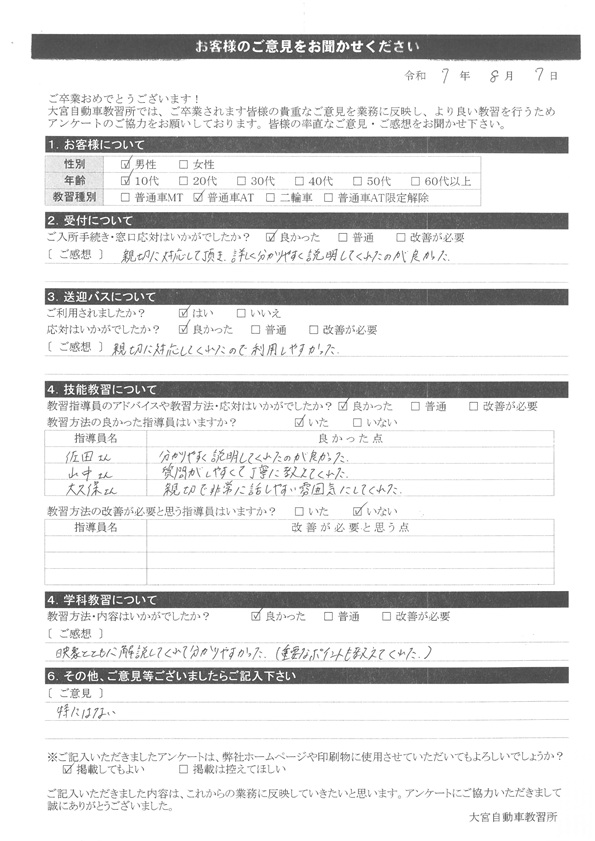 お客様のご意見をお聞かせください
令和 7 年 8 月 7 日
ご卒業おめでとうございます!
大宮自動車教習所では、ご卒業されます皆様の貴重なご意見を業務に反映し、より良い教習を行うため
アンケートのご協力をお願いしております。皆様の率直なご意見・ご感想をお聞かせ下さい。
1. お客様について
性別 ☑男性 □女性
年齢 ☑10代 □20代 □30代 □40代 □50代 □60代以上
教習種別 □普通車MT ☑普通車AT □二輪車 □普通車AT限定解除
2. 受付について
ご入所手続き・窓口応対はいかがでしたか? ☑良かった □普通 □改善が必要
[ ご感想 ] 親切に対応して頂き、詳しく分かりやすく説明してくれたのが良かった。
3. 送迎バスについて
ご利用されましたか? ☑はい □いいえ
応対はいかがでしたか? ☑良かった □普通 □改善が必要
[ ご感想 ] 親切に対応してくれたので利用しやすかった。
4. 技能教習について
教習指導員のアドバイスや教習方法・応対はいかがでしたか? ☑良かった □普通 □改善が必要
教習方法の良かった指導員はいますか? ☑いた □いない
指導員名 良かった点
佐田さん 分かりやすく説明してくれたのが良かった。
山中さん 質問がしやすくて丁寧に教えてくれた。
大久保さん 親切で非常に話しやすい雰囲気にしてくれた。
教習方法の改善が必要と思う指導員はいますか? □いた ☑いない
指導員名 改善が必要と思う点
4. 学科教習について
教習方法・内容はいかがでしたか? ☑良かった □普通 □改善が必要
[ ご感想 ]
映象とともに解説してくれて分かりやすかった。(重要なポイントも教えてくれた。)
6. その他、ご意見等ございましたらご記入下さい
[ ご意見 ]
特にはない
※ご記入いただきましたアンケートは、弊社ホームページや印刷物に使用させていただいてもよろしいでしょうか?
☑掲載してもよい □掲載は控えてほしい
ご記入いただきました内容は、これからの業務に反映していきたいと思います。アンケートにご協力いただきまして
誠にありがとうございました。
大宮自動車教習所